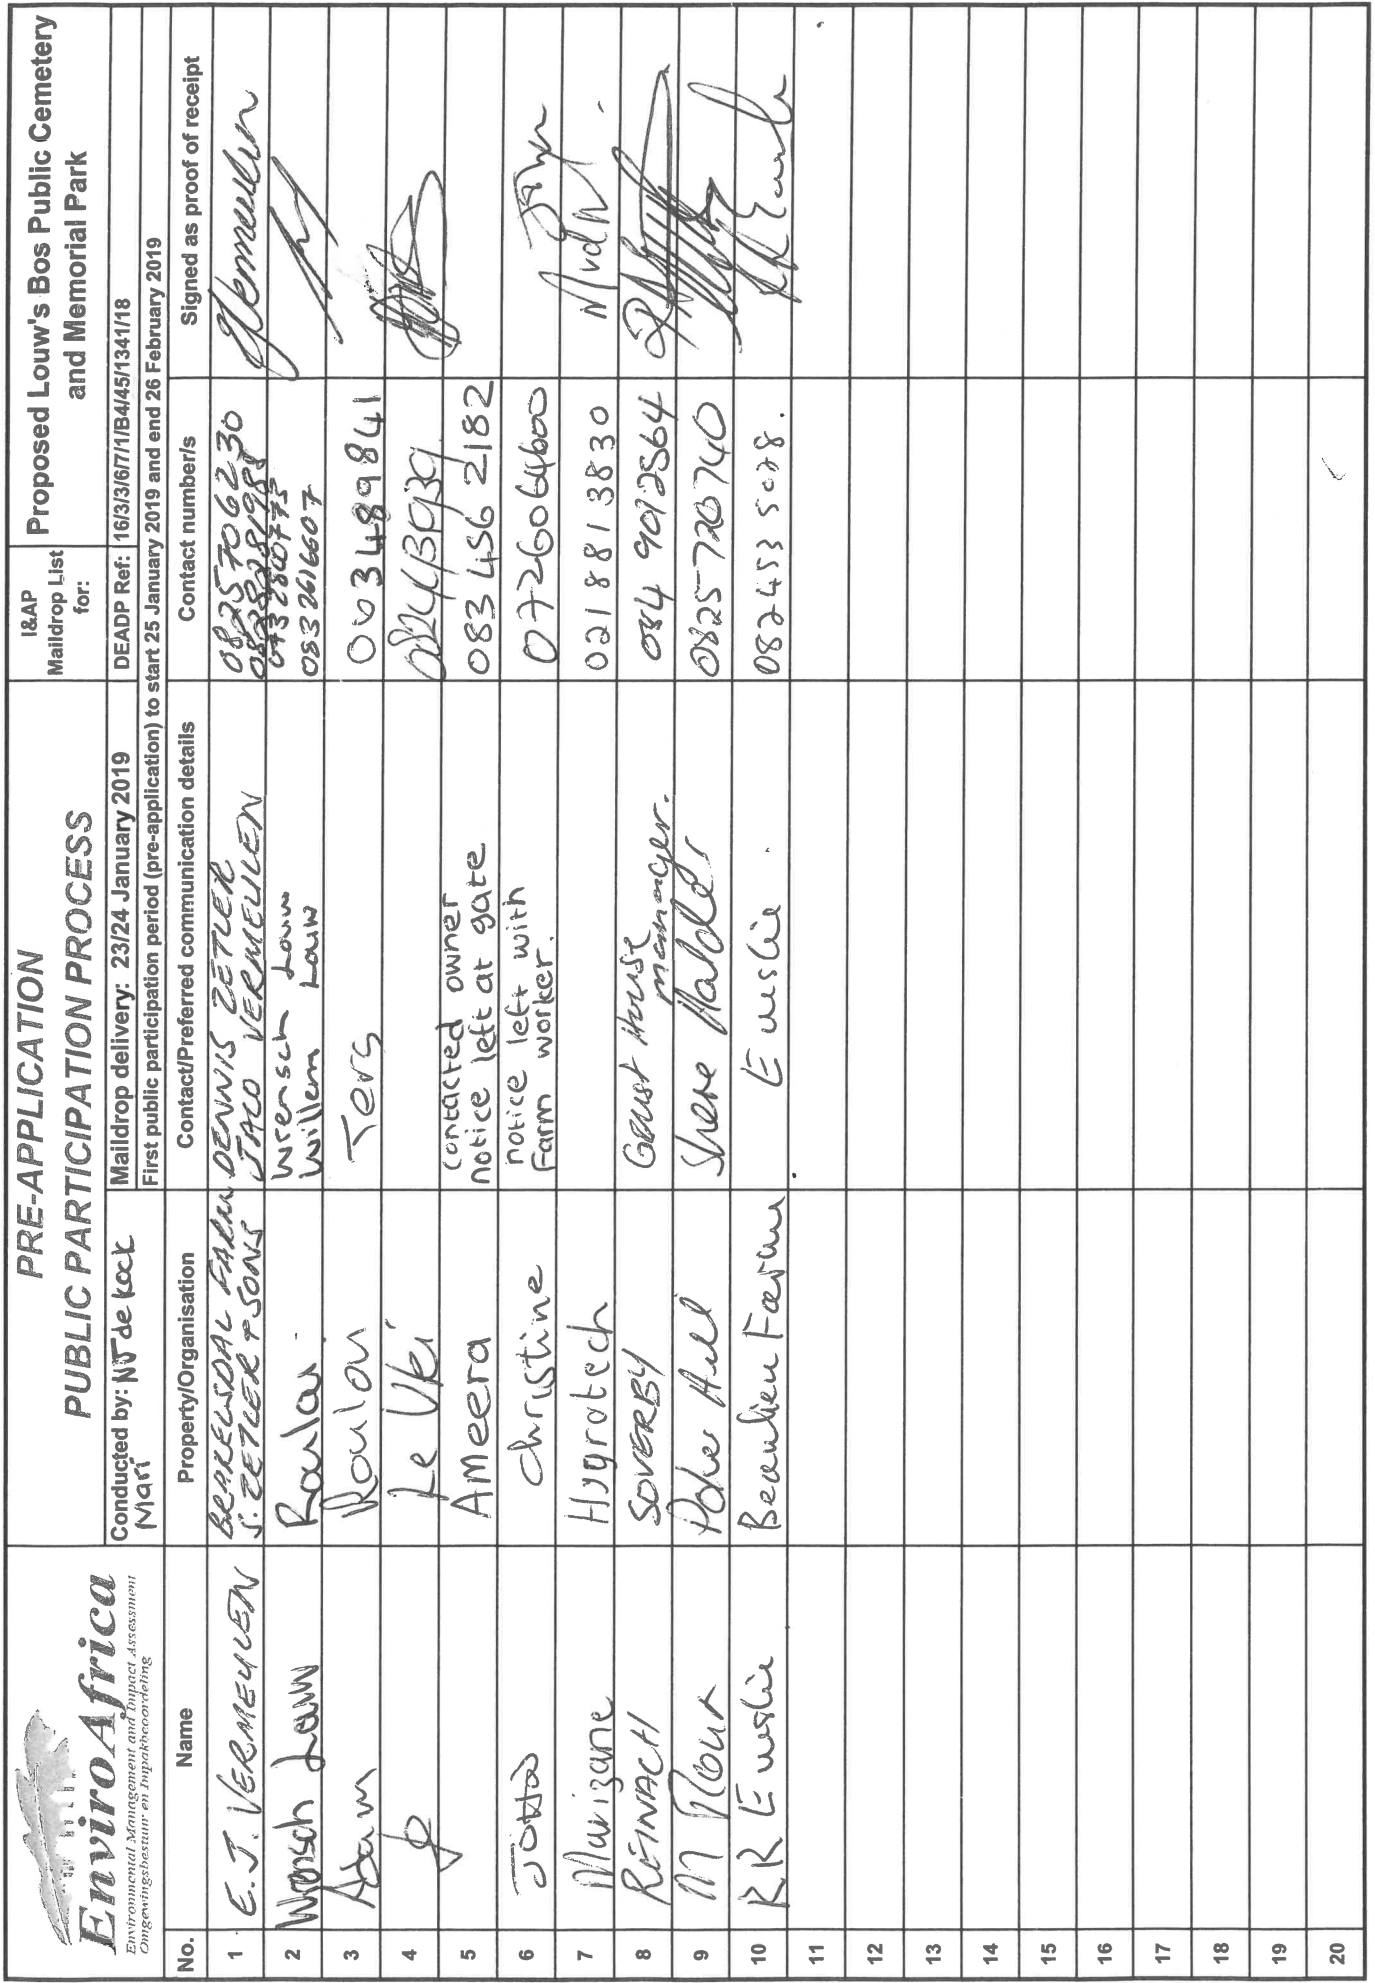 EnviroAfrica
Environmental Management and Impact Assessment
Omgewingsbestuur en Impakbeoordeling
PRE-APPLICATION
PUBLIC PARTICIPATION PROCESS
I&AP
Maildrop List
for:
Proposed Louw's Bos Public Cemetery
and Memorial Park
Conducted by: NJ de Kock
Mari
Maildrop delivery: 23/24 January 2019
DEADP Ref: 16/3/3/6/7/1/B4/45/1341/18
First public participation period (pre-application) to start 25 January 2019 and end 26 February 2019
No. Name Property/Organisation Contact/Preferred communication details Contact number/s Signed as proof of receipt
1 E.J. VERMEULEN BRAKELSDAL FARM DENNIS ZETLER 0825706230
S. ZETLER & SONS JACO VERMEULEN 0828281988
2 Wrensch Louw Wrensch Louw 0732800775
Willem Louw 0832616607
3 Adam
4 0824431939
5 Ameera contacted owner 083 456 2182
notice left at gate
6 Christine notice left with 0726064600
farm worker.
7 Marizane Hygrotech 0218813830 MvdM
8 REINACH SOVERBY Guest House 084 9012564
manager.
9 M Roux 0825720740
10 RR Emslie Beaulieu Farm Emslie. 082453 5028.
11
12
13
14
15
16
17
18
19
20